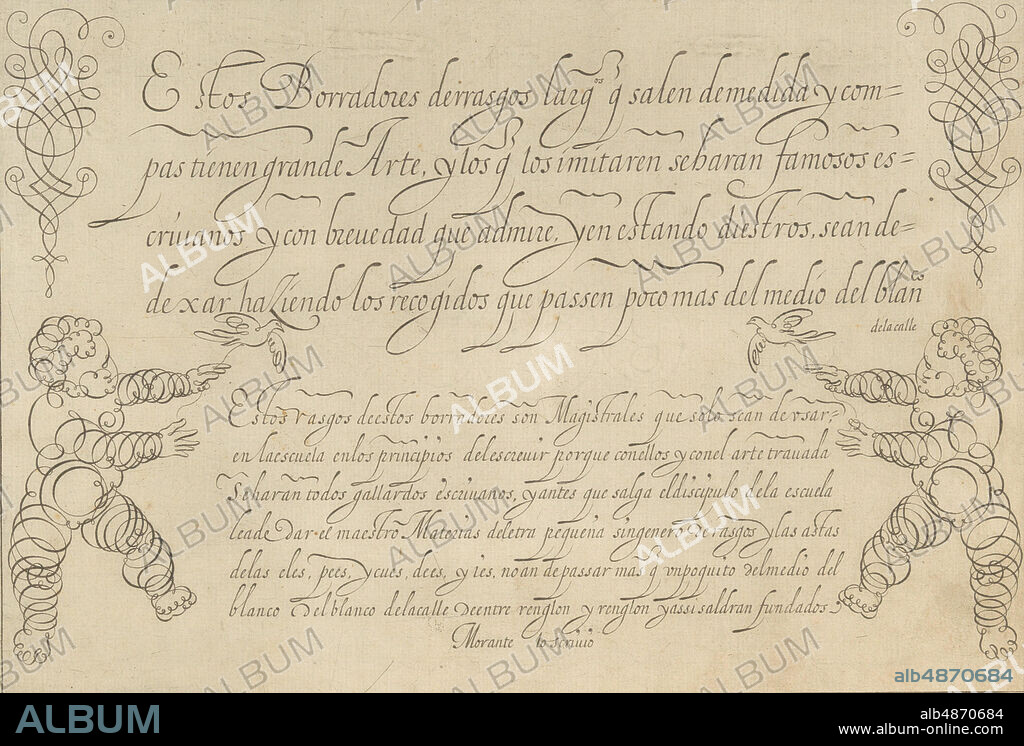 Estos Borradores derrasgos largos q̃ salen demedida y com=
pas tienen grande Arte, y los q̃ los imitaren seharan famosos es=
criuanos y con breuedad que admire, y en estando diestros, sean de=
dexar haziendo los recogidos que passen poco mas del medio del blan
delacalle
Estos rasgos deestos borradores son Magistrales que solo sean de vsar,
en laescuela enlos principios delescreuir porque conellos y conel arte trauada
Seharan todos gallardos escriuanos, yantes que salga eldiscipulo dela escuela
leade Dar el maestro Materias deletra pequeña singenero De rasgos y las astas
delas eles, pees, y cues, dees, y ies, noan de passar mas q̃ vnpoquito Delmedio del
blanco Del blanco delacalle Deentre renglon y renglon y assi saldran fundados
Morante lo scriuio
ALBUM
alb4870684
ALBUM
alb4870684
www.album-online.com